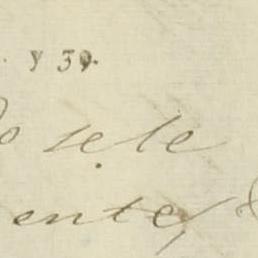 y 39.
o sele
ente,